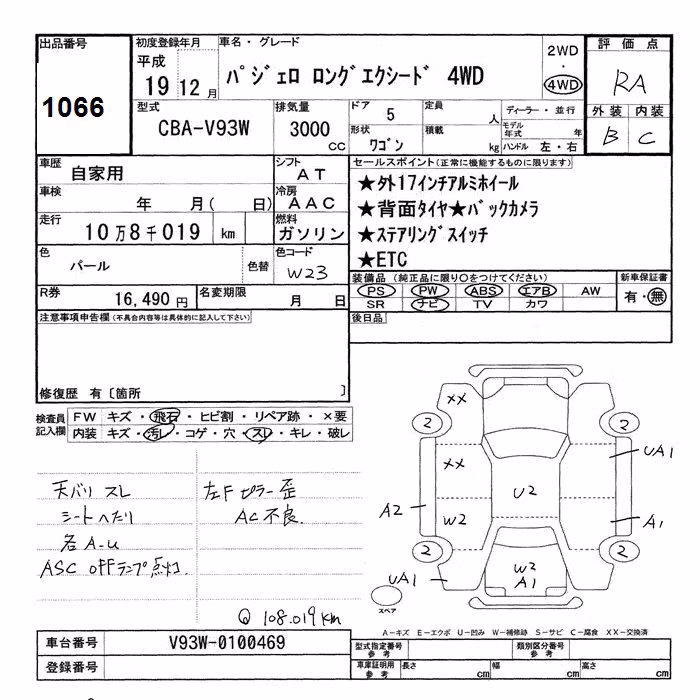 出品番号
1066
初度登録年月
平成
19 12 月
車名・グレード
パジェロ ロングエクシード 4WD
2WD
・
4WD
評価点
RA
外装 内装
B C
型式
CBA-V93W
排気量
3000 CC
ドア
5
形状
ワゴン
定員
人
積載
kg
ディーラー・並行
モデル年式 年
ハンドル 左・右
車歴
自家用
シフト
AT
車検
年 月( 日)
冷房
AAC
走行
10万8千019 km
燃料
ガソリン
色
パール
色替
色コード
W23
R券
16,490 円
名変期限
月 日
セールスポイント(正常に機能するものに限ります)
★外17インチアルミホイール
★背面タイヤ★バックカメラ
★ステアリングスイッチ
★ETC
装備品 (純正品に限り○をつけてください)
PS PW ABS エアB AW
SR ナビ TV カワ
新車保証書
有・無
後日品
注意事項申告欄(不具合内容等は具体的に記入して下さい)
修復歴 有〔箇所 〕
検査員記入欄
FW キズ・飛石・ヒビ割・リペア跡・×要
内装 キズ・汚レ・コゲ・穴・スレ・キレ・破レ
天バリ スレ
シートへたり
各A-U
ASC OFFランプ点灯
左Fピラー歪
AC不良
Q 108.019km
XX
2
2
XX
UA1
U2
A2
W2
A1
2
2
W2
A1
UA1
スペア
A-キズ E-エクボ U-凹み W-補修跡 S-サビ C-腐食 XX-交換済
車台番号
V93W-0100469
登録番号
型式指定番号
参考
類別区分番号
参考
車庫証明用
参考
長さ cm 幅 cm 高さ cm